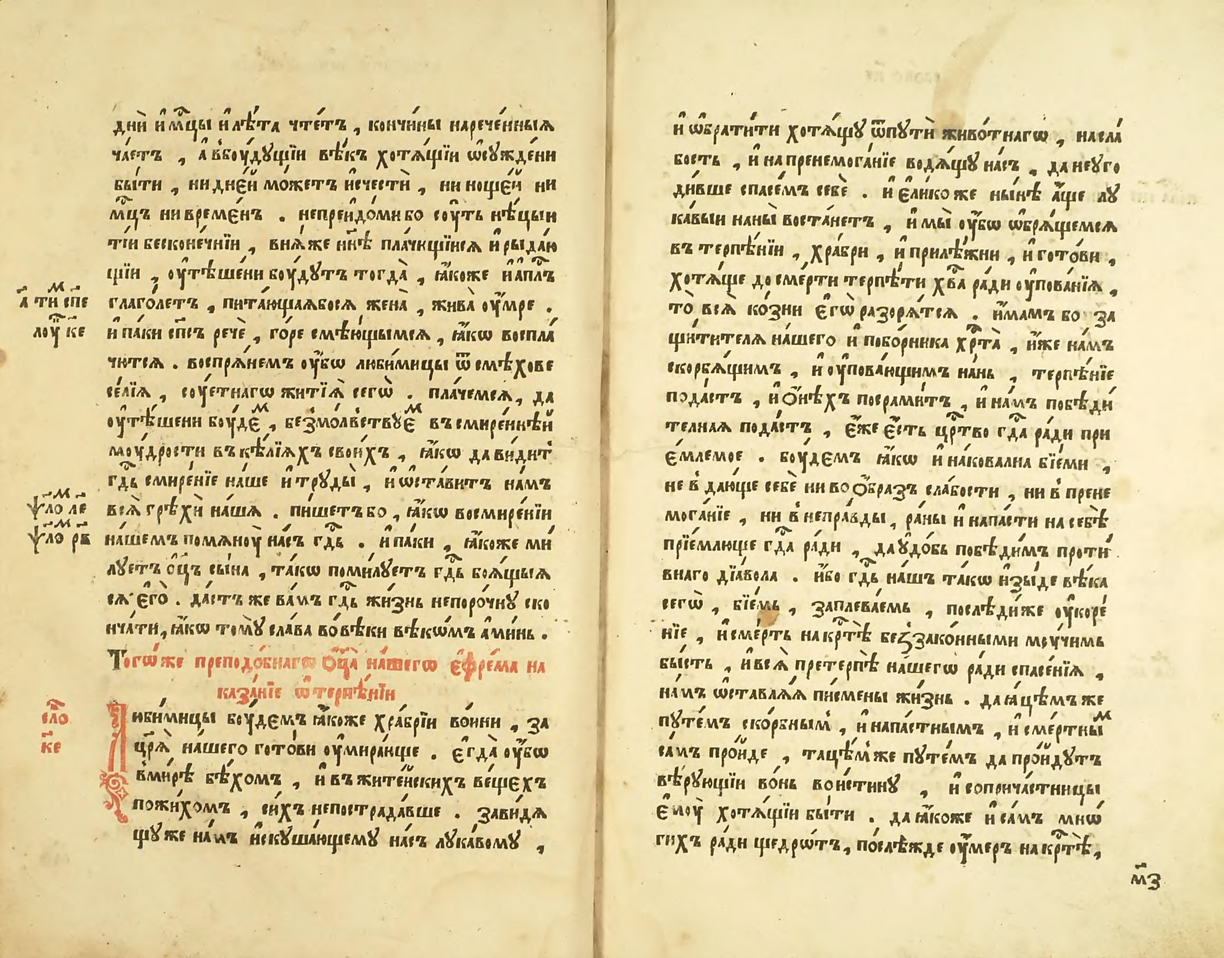 днѝ и҆ мц҃ы и҆ лѣ́та чте́тъ , кончи́ны нарече́нныѧ
ча́етъ , а҆ вбоу́дꙋщїи вѣ́къ хотѧ́щїи ѡ҆сꙋжде́ни
бы́ти , ни дне́й мо́жетъ и҆счестѝ , ни нощей ни
мц҃ъ ни време́нъ . непреидо́ми бо соу́ть нѣ́цыи
ті́и бесконе́чнїи , внѧ́же нн҃ѣ пла́чющїисѧ и҆ рыда́ю
щїи , оу҆тѣ́шени боу́дꙋтъ тогда̀ , ꙗ҆́коже и҆ а҆пл҃ъ
глаго́летъ , пита́ющаѧбосѧ жена̀ , жива̀ оу҆́мре .
и҆ па́ки сп҃съ речѐ , го́ре смѣю́щымсѧ , ꙗ҆́кѡ воспла́
чютсѧ . воспрѧ́немъ оу҆́бѡ люби́мицы ѿ смѣ́хове
се́лїѧ , соу́етнагѡ житїѧ̀ сегѡ̀ . пла́чемсѧ , да
оу҆тѣ́шени боу́деⷨ , безмо́лвствꙋеⷨ въ смире́ннѣй
моу́дрости въ кѣ́лїѧхъ свои́хъ , ꙗ҆́кѡ да ви́дитъ
гдⷭ҇ь смире́нїе на́ше и҆ трꙋды̀ , и҆ ѡ҆ста́витъ на́мъ
всѧ̀ грѣхѝ на́шѧ . пи́шетъ бо , ꙗ҆́кѡ восмире́нїи
на́шемъ помѧноу̀ на́съ гдⷭ҇ь . и҆ па́ки , ꙗ҆́коже ми́
лꙋетъ ѻ҆ц҃ъ сы́на , та́кѡ поми́лꙋетъ гдⷭ҇ь боѧ́щыѧ
сѧ є҆го̀ . да́стъ же ва́мъ гдⷭ҇ь жи́знь непоро́чнꙋ ско
нча́ти, ꙗ҆́кѡ томꙋ̀ сла́ва во вѣ́ки вѣкѡ́мъ а҆ми́нь .
Тогѡ́же преподо́бнагѡ ѻ҆ц҃а на́шегѡ є҆фре́ма на
каза́нїе ѡ҆ терпѣ́нїи
Люби́мицы боу́демъ ꙗ҆́коже хра́брїи во́ини , за
цр҃ѧ̀ на́шего гото́ви оу҆мира́юще . є҆гда̀ оу҆́бѡ
в ми́рѣ бѣ́хомъ , и҆ въ жите́йскихъ ве́щехъ
пожи́хомъ , си́хъ непострада́вше . зави́дѧ
щꙋ же на́мъ и҆скꙋша́ющемꙋ на́съ лꙋка́вомꙋ ,
а҃ ти спе
лоу҃ ке
ѱло ле
ѱло рв
сло
к҃е
и҆ ѡ҆брати́ти хотѧ́щꙋ ѿ пꙋтѝ живо́тнагѡ , на сла́
бость , и҆ на пренемога́нїе водѧ́щꙋ на́съ , да не ᲂуго
ди́вше спасе́мъ себѐ . и҆ є҆ли́ко же ны́нѣ а҆́ще лꙋ
ка́выи на ны̀ воста́нетъ , и҆ мы̀ оу҆́бѡ ѡ҆брѧ́щемсѧ
въ терпѣ́нїи , хра́бри , и҆ прилѣ́жни , и҆ гото́ви ,
хотѧ́ще до сме́рти терпѣ́ти хв҃а ра́ди оу҆пова́нїѧ ,
то̀ всѧ̀ ко́зни є҆гѡ̀ разорѧ́тсѧ . и҆́мамъ бо за
щи́тителѧ на́шего и҆ побо́рника хрⷭ҇та̀ , и҆́же на́мъ
скорбѧ́щимъ , и҆ оу҆пова́ющимъ на́нь , терпѣ́нїе
пода́стъ , и҆ ѻ҆́нѣхъ посрами́тъ , и҆ на́мъ побѣди́
телнаѧ пода́стъ , є҆́же є҆́сть црⷭ҇тво гдⷭ҇а ра́ди при
є҆́млемое . боу́демъ ꙗ҆́кѡ и҆ накова́лна бїе́ми ,
не в даю́ще себѐ ни во ѻ҆́бразъ сла́бости , ни в прене
мога́нїе , ни в непра́вды , ра́ны и҆ напа́сти на себѣ̀
прїе́млюще гдⷭ҇а ра́ди , да ᲂудо́бь побѣди́мъ проти́
внаго дїа́вола . и҆́бо гдⷭ҇ь на́шъ та́кѡ и҆зы́де вѣ́ка
сегѡ̀ , бїе́мь , заплева́емь , послѣди́же оу҆коре́
нїе , и҆ сме́рть на крⷭ҇тѣ̀ беззако́нными мꙋ́чимь
бы́сть , и҆ всѧ̀ претерпѣ̀ на́шегѡ ра́ди спасе́нїѧ ,
на́мъ ѡ҆ставлѧ́ѧ пи́смены жи́знь . да ꙗ҆цѣ́мъ же
пꙋте́мъ ско́рбнымъ , и҆ напа́стнымъ , и҆ сме́ртныⷨ
са́мъ про́йде , тацѣ́мже пꙋте́мъ да про́йдꙋтъ
вѣ́рꙋющїи во́нь вои́стинꙋ , и҆ соприча́стницы
є҆моу̀ хотѧ́щїи бы́ти . да ꙗ҆́коже и҆ са́мъ мно́
гихъ ра́ди щедро́тъ, послѣ́жде оу҆́меръ на крⷭ҇тѣ̀,
м҃з